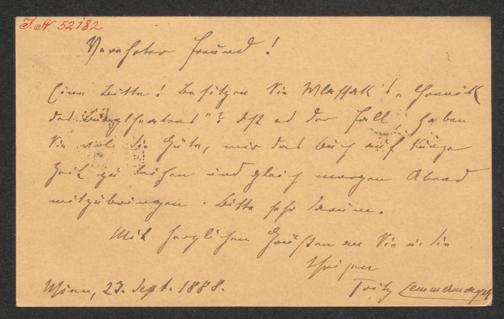 J.N. 52182
Verehrter Freund!
Eine Bitte! Besitzen Sie Wlassak's „Chronik
des Burgtheaters"? Ist es der Fall, haben
Sie wol die Güte, mir das Buch auf kurze
Zeit zu leihen und gleich morgen Abend
mitzubringen. Bitte sehr darum.
Mit herzlichen Grüßen an Sie u. die
Ihrigen
Wien, 23. Sept. 1888. Fritz Lemmermayer